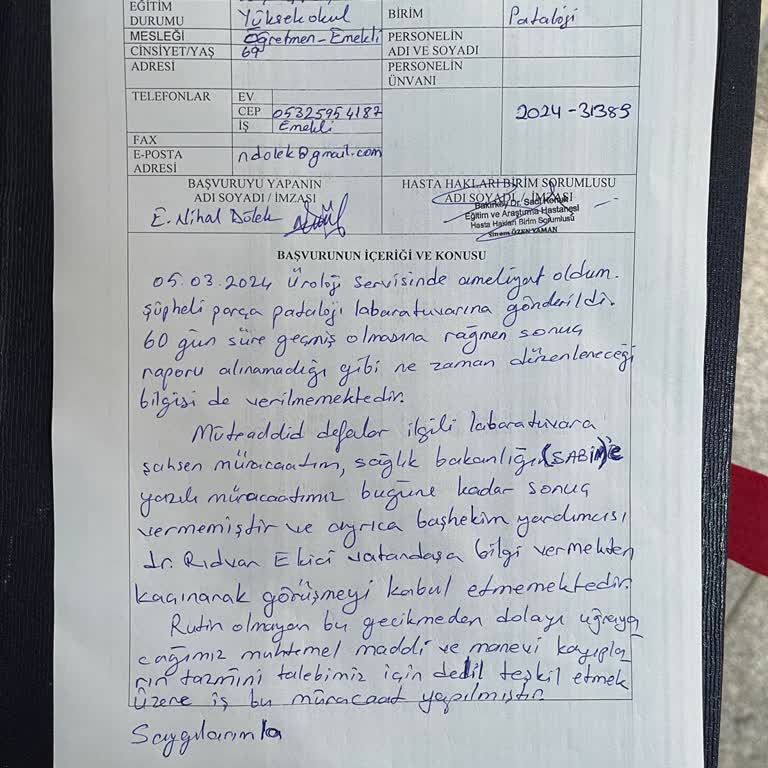 EĞİTİM
DURUMU Yüksekokul
BİRİM Pataloji
MESLEĞİ Öğretmen-Emekli
PERSONELİN
ADI VE SOYADI
CİNSİYET/YAŞ 69
ADRESİ
PERSONELİN
ÜNVANI
TELEFONLAR
EV
CEP 05325954187
İŞ Emekli
2024-31389
FAX
E-POSTA
ADRESİ ndolek@gmail.com
BAŞVURUYU YAPANIN
ADI SOYADI / İMZASI
E. Nihal Dölek
HASTA HAKLARI BİRİM SORUMLUSU
ADI SOYADI / İMZASI
Bakırköy Dr. Sadi Konuk
Eğitim ve Araştırma Hastanesi
Hasta Hakları Birim Sorumlusu
Sinem ÖZEN YAMAN
BAŞVURUNUN İÇERİĞİ VE KONUSU
05.03.2024 Üroloji servisinde ameliyat oldum.
Şüpheli parça pataloji labaratuvarına gönderildi.
60 gün süre geçmiş olmasına rağmen sonuç
raporu alınamadığı gibi ne zaman düzenleneceği
bilgisi de verilmemektedir.
Müteaddid defalar ilgili labaratuvara
şahsen müracaatım, sağlık bakanlığın (SABİM)'e
yazılı müracaatımız bugüne kadar sonuç
vermemiştir ve ayrıca başhekim yardımcısı
dr. Rıdvan Ekici vatandaşa bilgi vermekten
kaçınarak görüşmeyi kabul etmemektedir.
Rutin olmayan bu gecikmeden dolayı uğraya
cağımız muhtemel maddi ve manevi kayıpla
rın tazmini talebimiz için delil teşkil etmek
üzere iş bu müracaat yapılmıştır.
Saygılarımla